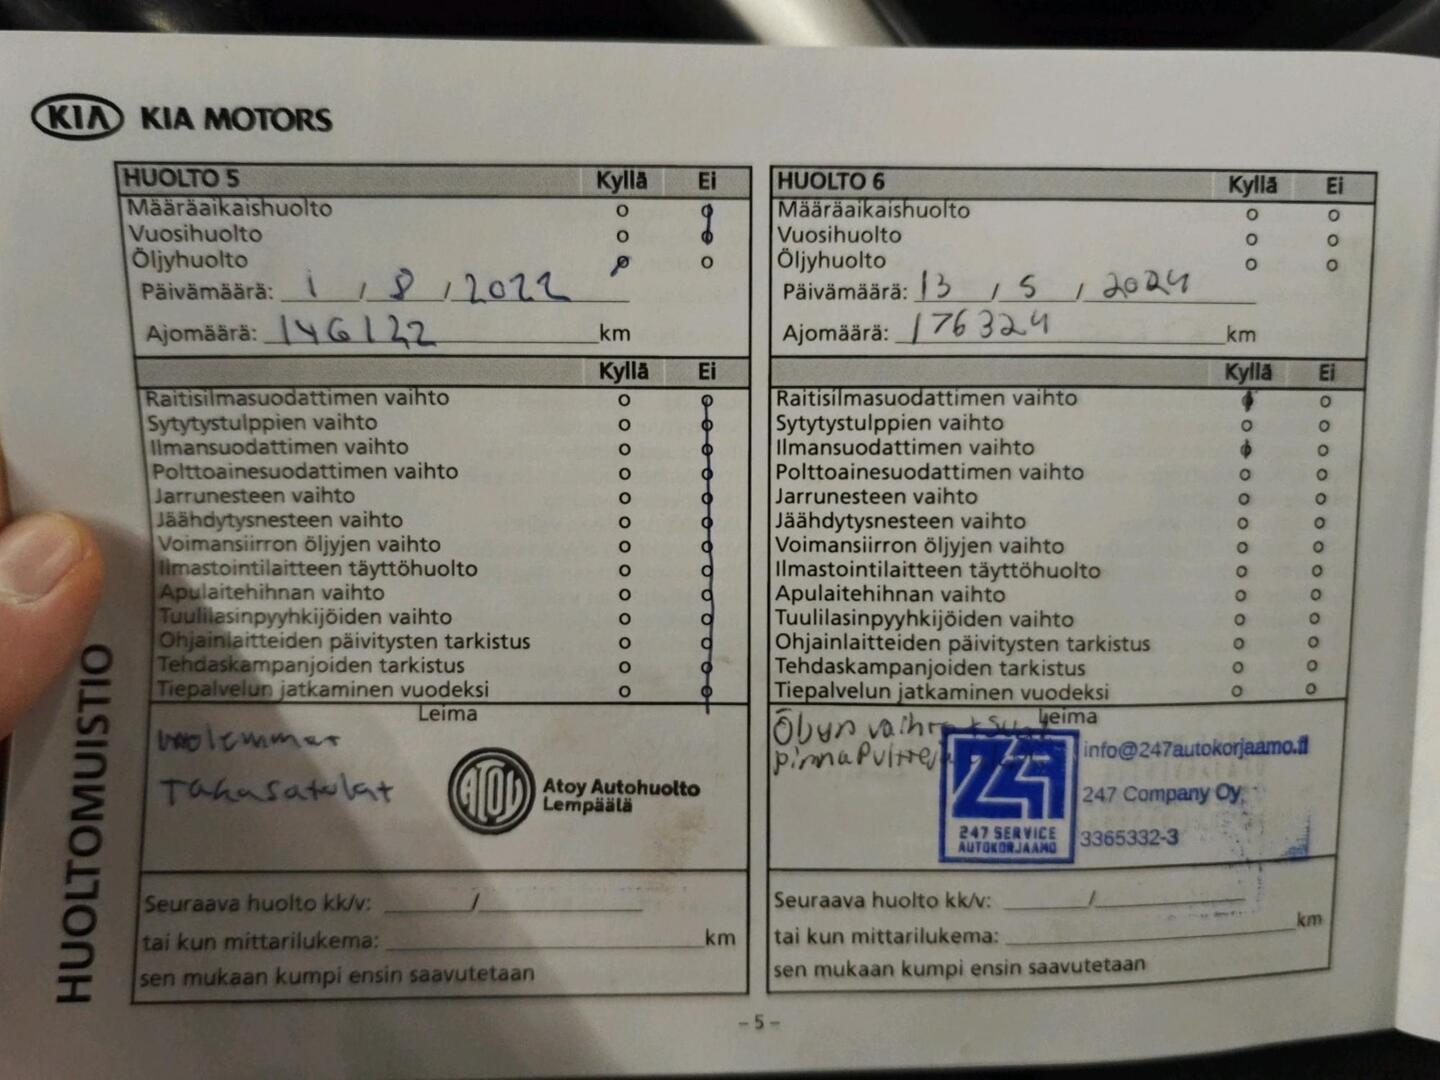 KIA KIA MOTORS
HUOLTO 5 Kyllä Ei
Määräaikaishuolto o o
Vuosihuolto o o
Öljyhuolto o o
Päivämäärä: 1 / 8 / 2022
Ajomäärä: 146122 km
Kyllä Ei
Raitisilmasuodattimen vaihto o o
Sytytystulppien vaihto o o
Ilmansuodattimen vaihto o o
Polttoainesuodattimen vaihto o o
Jarrunesteen vaihto o o
Jäähdytysnesteen vaihto o o
Voimansiirron öljyjen vaihto o o
Ilmastointilaitteen täyttöhuolto o o
Apulaitehihnan vaihto o o
Tuulilasinpyyhkijöiden vaihto o o
Ohjainlaitteiden päivitysten tarkistus o o
Tehdaskampanjoiden tarkistus o o
Tiepalvelun jatkaminen vuodeksi o o
Leima
molemmat
Takasatulat
ATOY Atoy Autohuolto
Lempäälä
Seuraava huolto kk/v: /
tai kun mittarilukema: km
sen mukaan kumpi ensin saavutetaan
HUOLTO 6 Kyllä Ei
Määräaikaishuolto o o
Vuosihuolto o o
Öljyhuolto o o
Päivämäärä: 13 / 5 / 2024
Ajomäärä: 176324 km
Kyllä Ei
Raitisilmasuodattimen vaihto o o
Sytytystulppien vaihto o o
Ilmansuodattimen vaihto o o
Polttoainesuodattimen vaihto o o
Jarrunesteen vaihto o o
Jäähdytysnesteen vaihto o o
Voimansiirron öljyjen vaihto o o
Ilmastointilaitteen täyttöhuolto o o
Apulaitehihnan vaihto o o
Tuulilasinpyyhkijöiden vaihto o o
Ohjainlaitteiden päivitysten tarkistus o o
Tehdaskampanjoiden tarkistus o o
Tiepalvelun jatkaminen vuodeksi o o
Leima
247
247 SERVICE
AUTOKORJAAMO
info@247autokorjaamo.fi
247 Company Oy,
3365332-3
Seuraava huolto kk/v: /
tai kun mittarilukema: km
sen mukaan kumpi ensin saavutetaan
HUOLTOMUISTIO
- 5 -